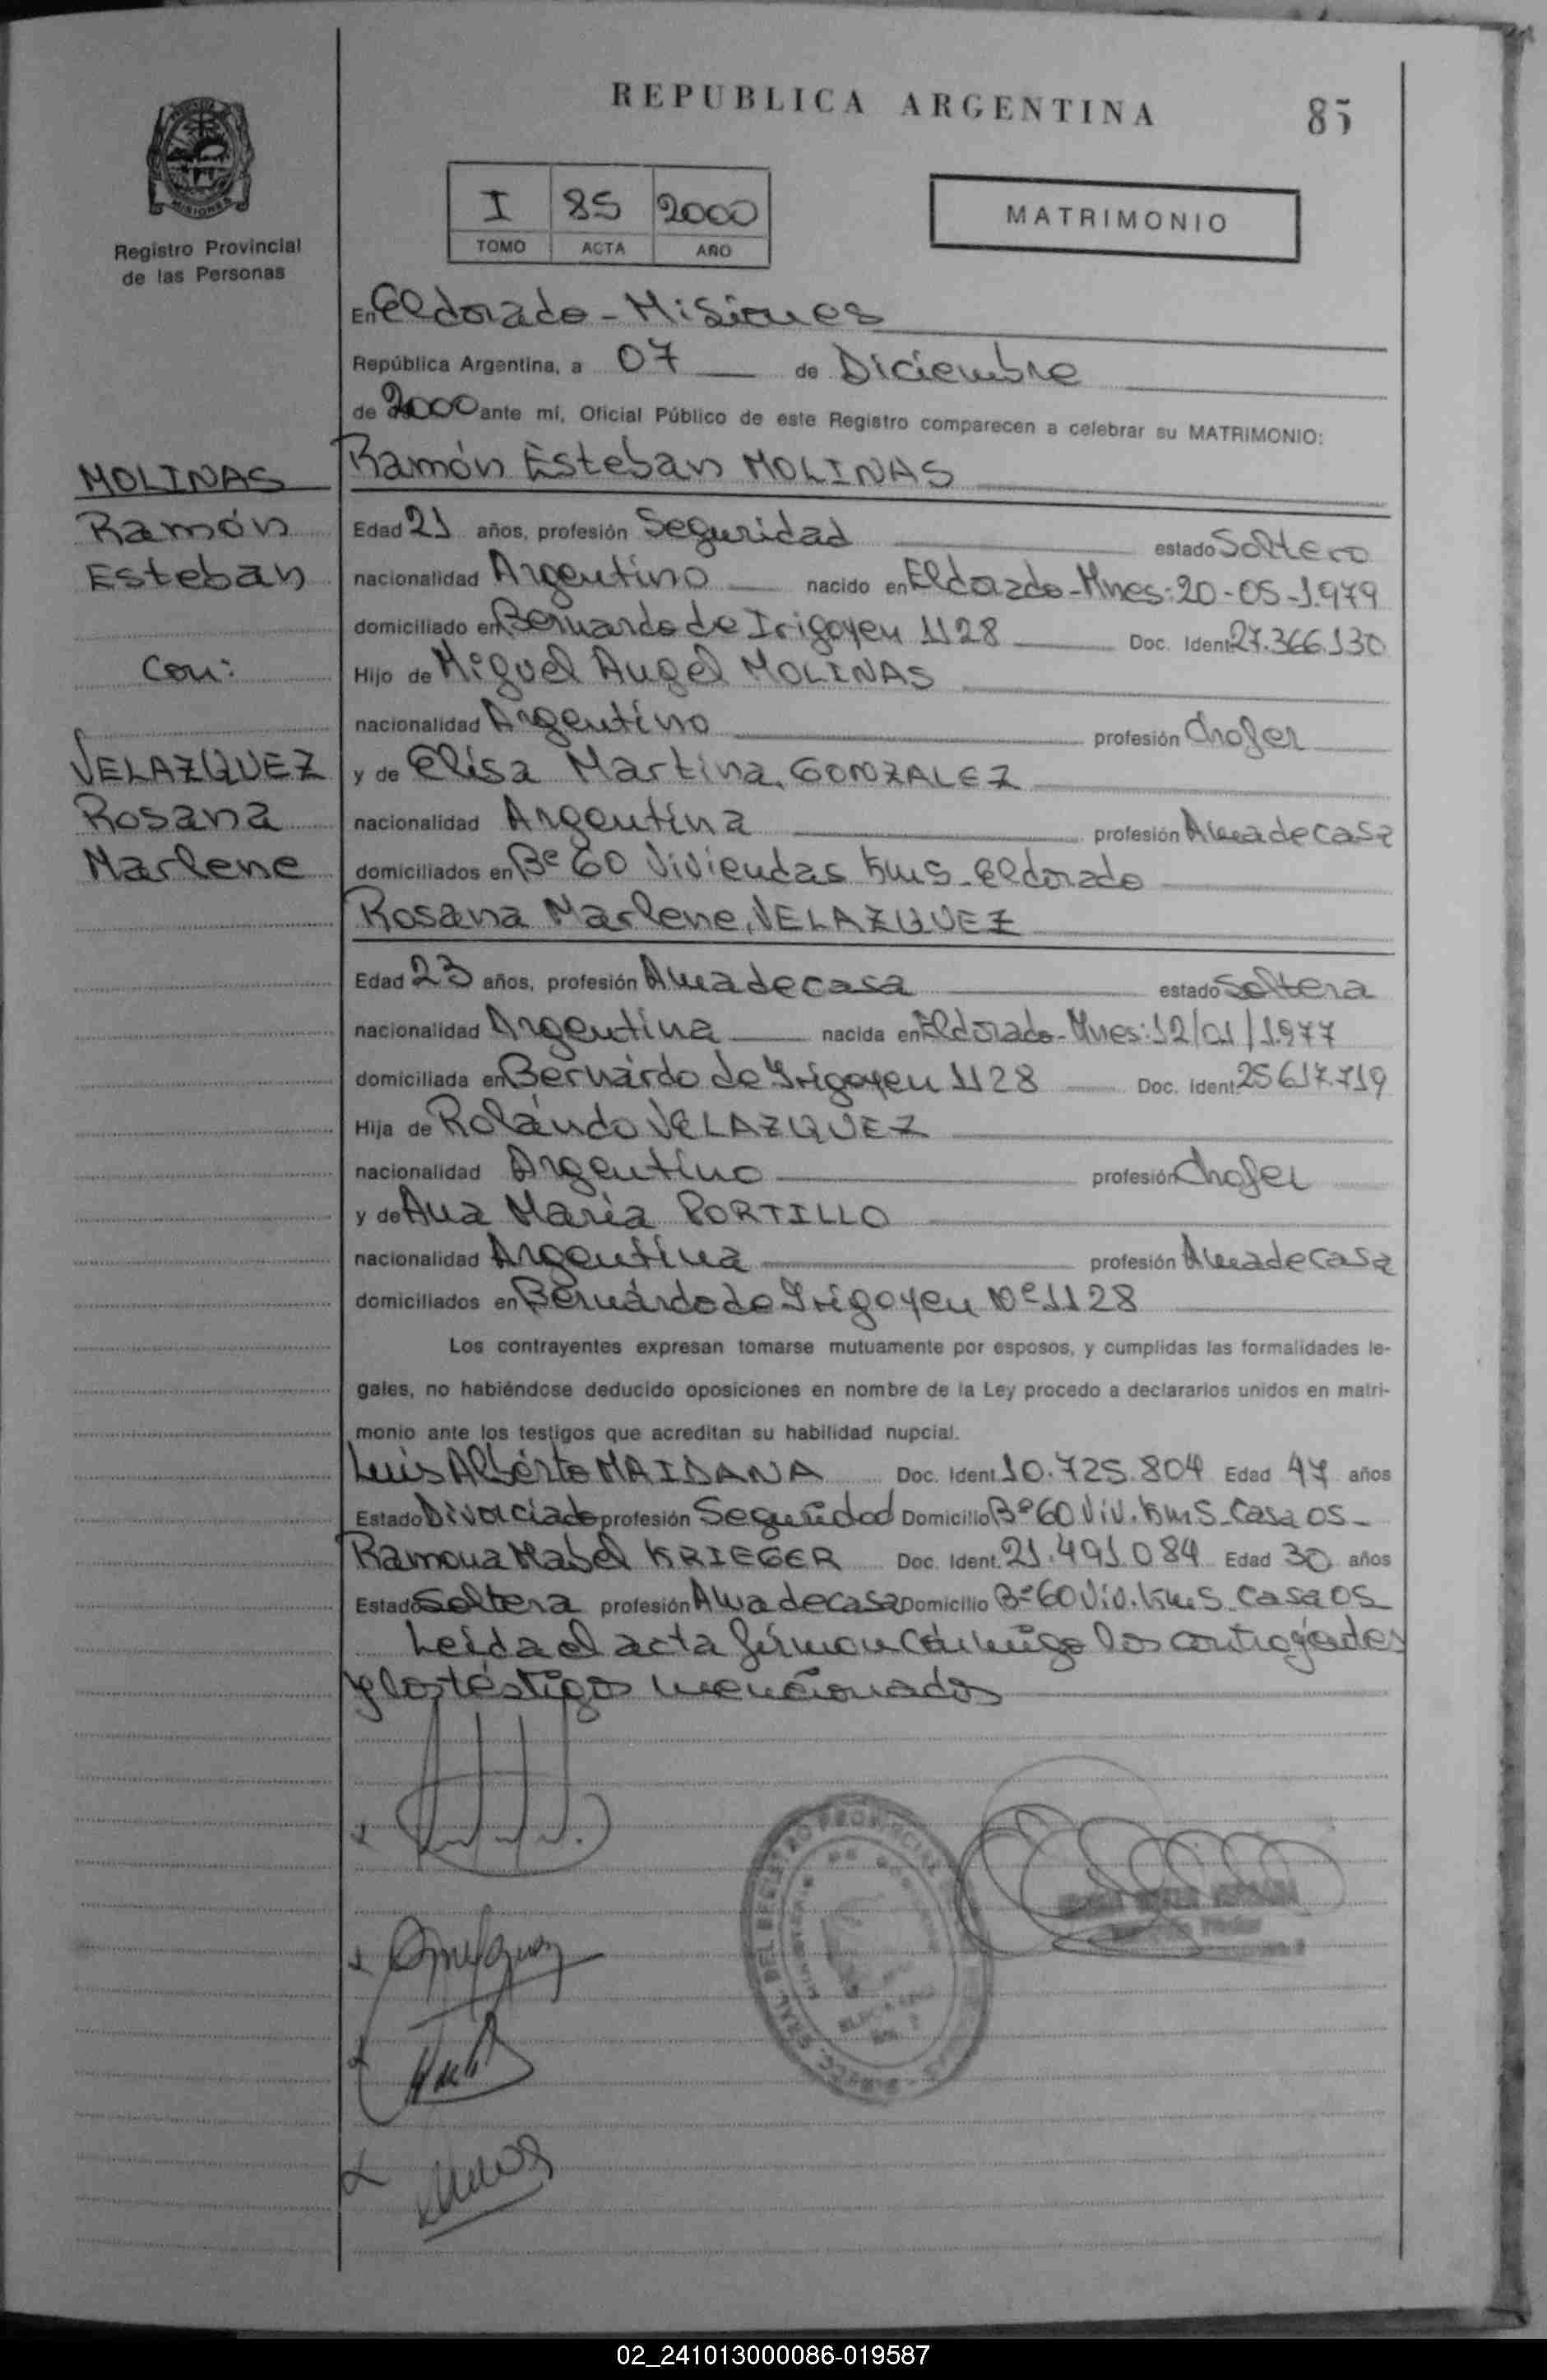 REPUBLICA ARGENTINA
85
MISIONES
Registro Provincial
de las Personas
I 85 2000
TOMO ACTA AÑO
MATRIMONIO
En Eldorado - Misiones
República Argentina, a 07 de Diciembre
de 2000 ante mí, Oficial Público de este Registro comparecen a celebrar su MATRIMONIO:
MOLINAS
Ramón
Esteban
Con:
VELAZQUEZ
Rosana
Marlene
Ramón Esteban MOLINAS
Edad 21 años, profesión Seguridad estado Soltero
nacionalidad Argentino nacido en Eldorado - Mnes: 20-05-1.979
domiciliado en Bernardo de Irigoyen 1128 Doc. Ident. 27.366.130
Hijo de Miguel Angel MOLINAS
nacionalidad Argentino profesión Chofer
y de Elisa Martina, GONZALEZ
nacionalidad Argentina profesión Ama de casa
domiciliados en Bº 60 Viviendas Km5 - Eldorado
Rosana Marlene, VELAZQUEZ
Edad 23 años, profesión Ama de casa estado Soltera
nacionalidad Argentina nacida en Eldorado - Mnes: 12/01/1.977
domiciliada en Bernardo de Irigoyen 1128 Doc. Ident. 25.617.719
Hija de Rolando VELAZQUEZ
nacionalidad Argentino profesión Chofer
y de Ana María PORTILLO
nacionalidad Argentina profesión Ama de casa
domiciliados en Bernardo de Irigoyen Nº 1128
Los contrayentes expresan tomarse mutuamente por esposos, y cumplidas las formalidades le-
gales, no habiéndose deducido oposiciones en nombre de la Ley procedo a declararlos unidos en matri-
monio ante los testigos que acreditan su habilidad nupcial.
Luis Alberto MAIDANA Doc. Ident. 10.725.804 Edad 47 años
Estado Divorciado profesión Seguridad Domicilio Bº 60 Viv. Km5 - Casa 05 -
Ramona Mabel KRIEGER Doc. Ident. 21.491.084 Edad 30 años
Estado Soltera profesión Ama de casa Domicilio Bº 60 Viv. Km5 - Casa 05
Leída el acta firman conmigo los contrayentes
y los testigos mencionados
02_241013000086-019587